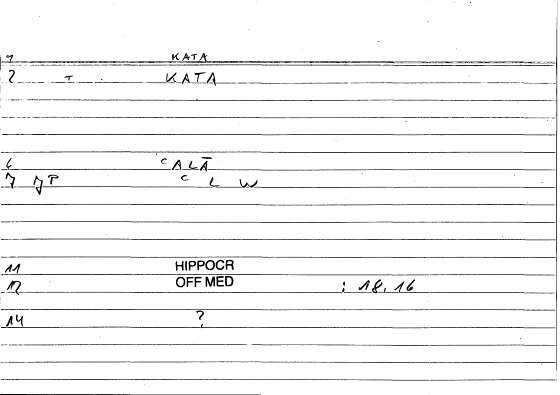 1 KATA
2 T KATA
6 CALĀ
7 JP C L W
11 HIPPOCR
12 OFF MED : 18,16
14 ?